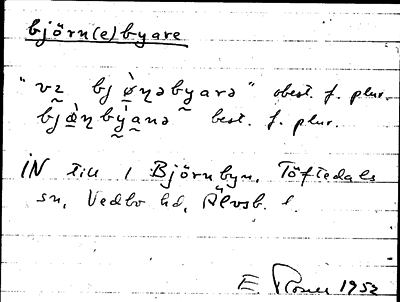 björn(e)byare
"vɪ bjø̀ŋəbyarə" obest. f. plur.
bjø̀ŋbỳanə best. f. plur.
iN till 1 Björnbyn, Töftedals
sn, Vedbo hd, Älvsb. l.
E 1953